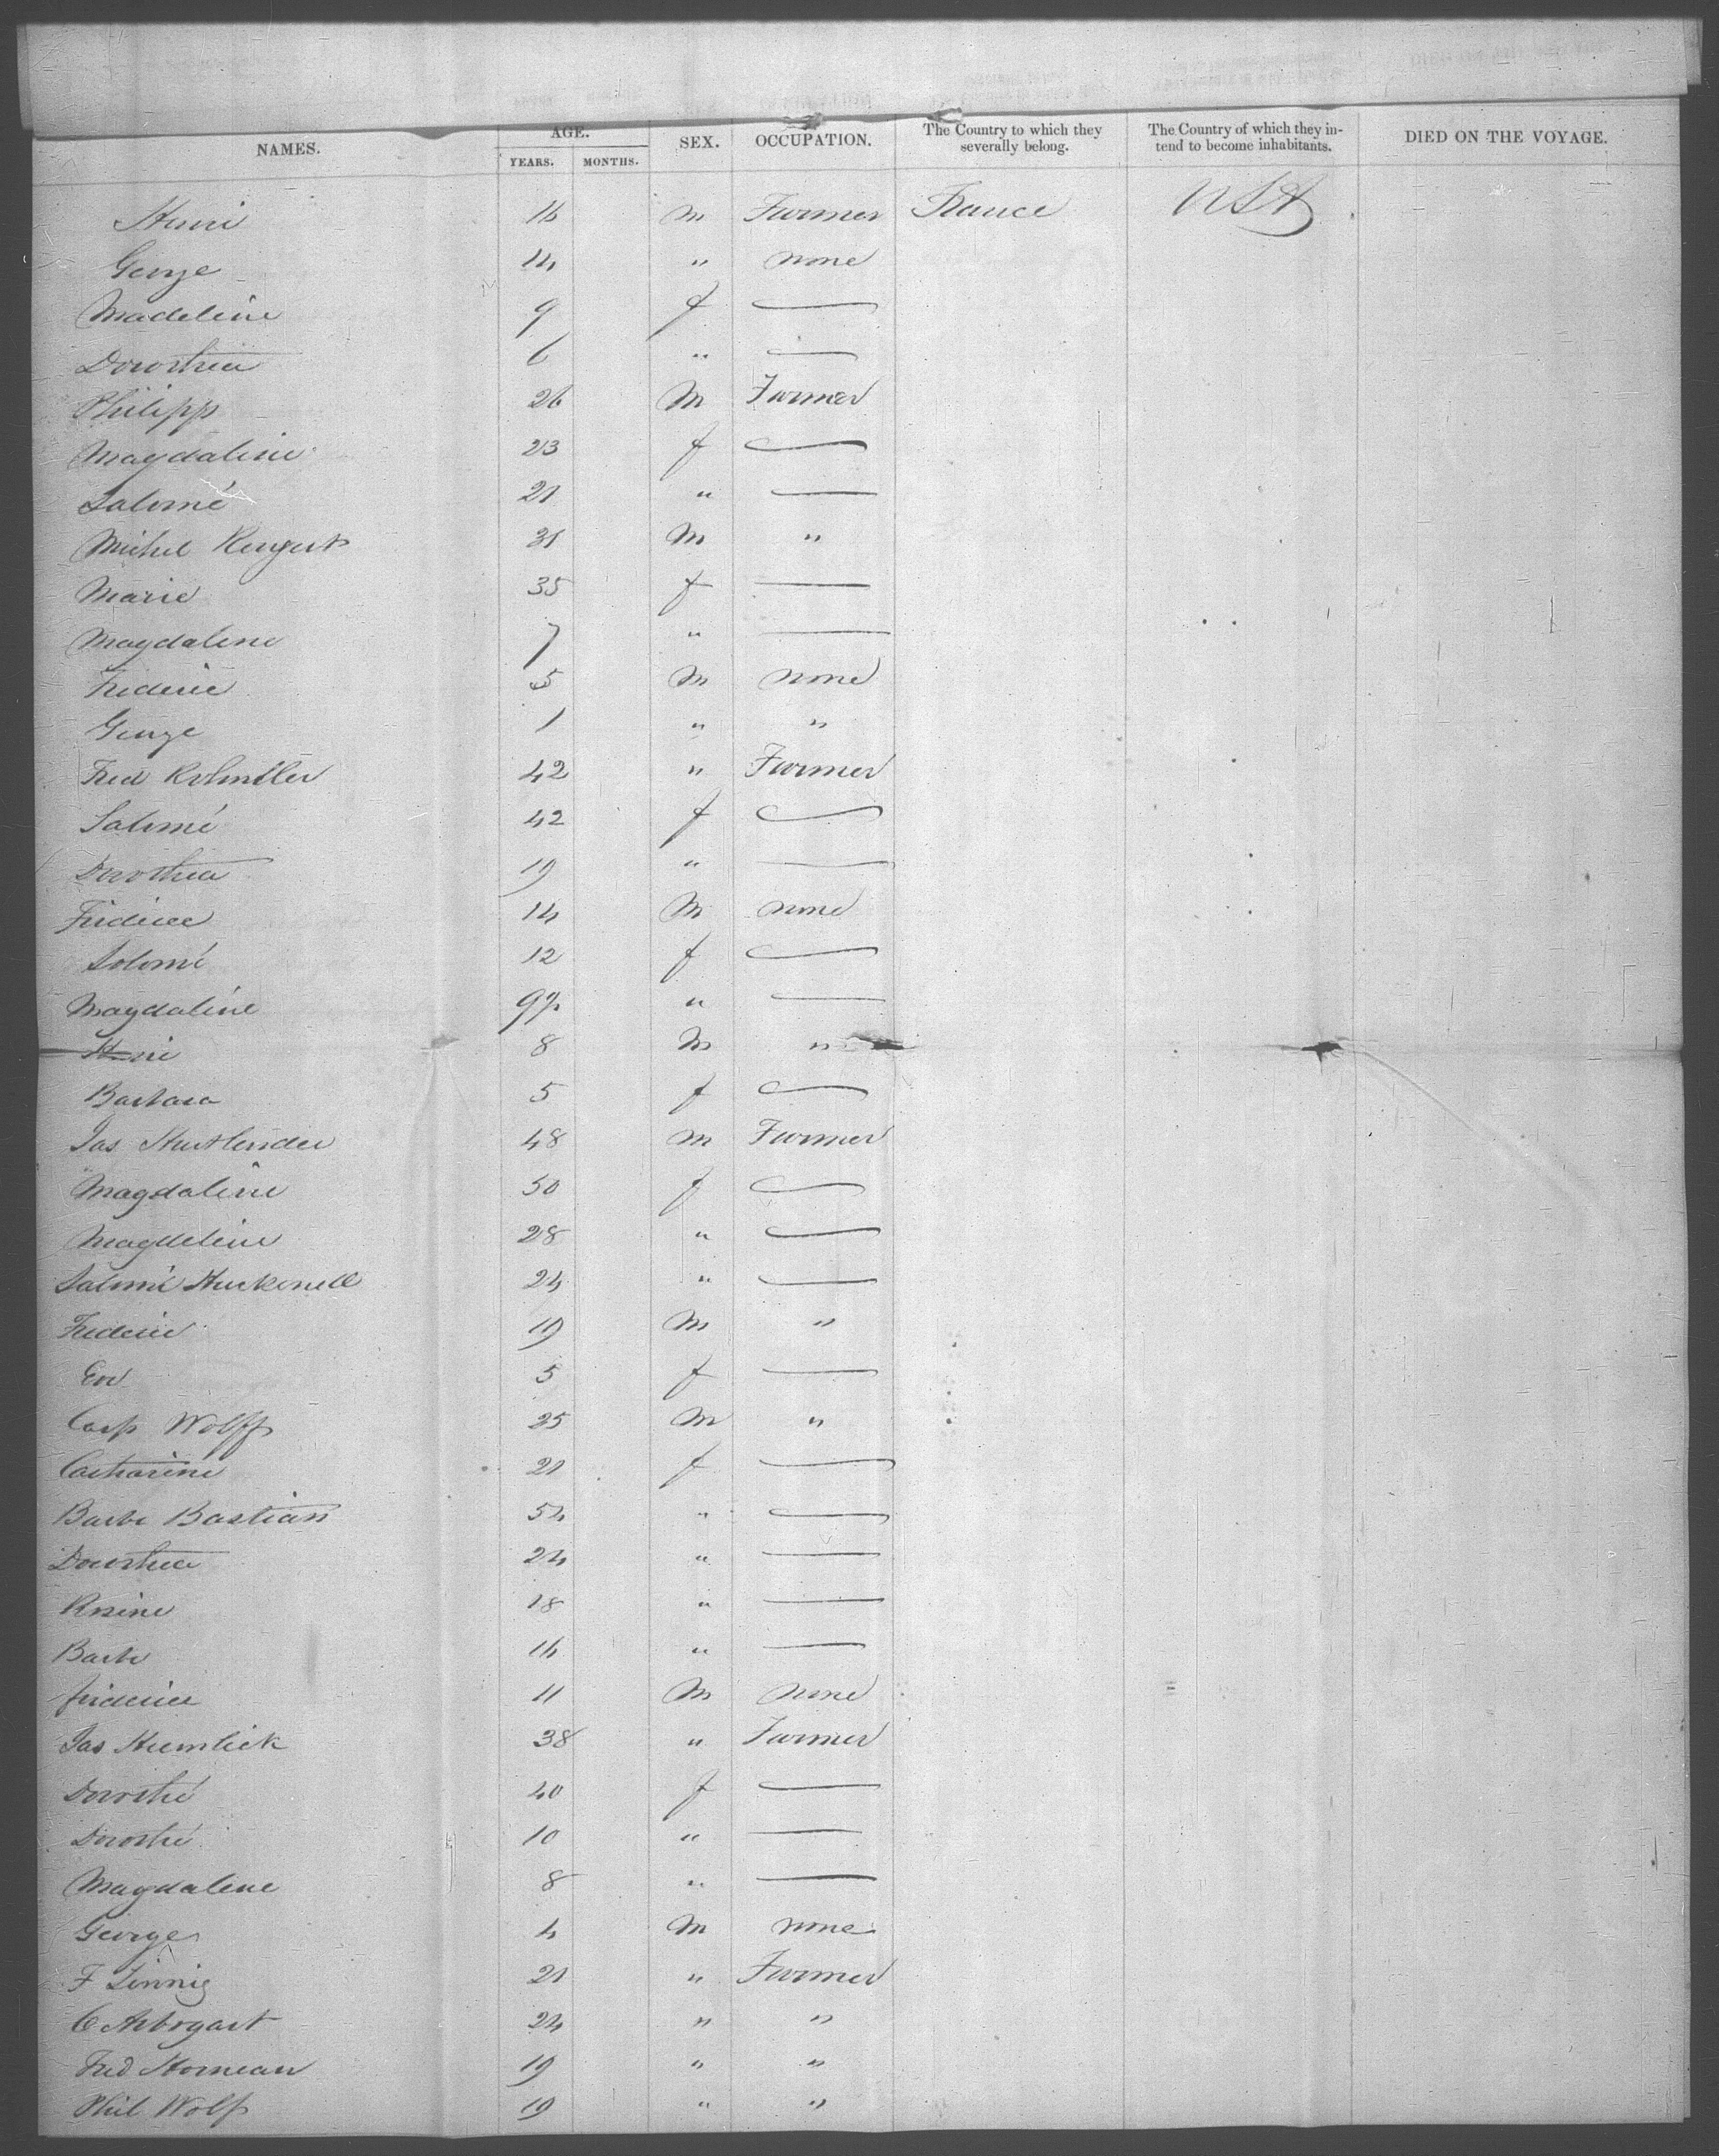 NAMES. AGE. YEARS. MONTHS. SEX. OCCUPATION. The Country to which they severally belong. The Country of which they intend to become inhabitants. DIED ON THE VOYAGE.
Henri 16 m Farmer France USA
George 14 " none
Madeleine 9 f —
Dorothea 6 " —
Philipp 26 M Farmer
Magdaline 23 f —
Salomé 21 " —
Michel 31 M "
Marie 35 f —
Magdalene 7 " —
Frederic 5 M none
George 1 " "
Fred 42 " Farmer
Salomé 42 f —
Dorothea 19 " —
Frideric 14 M none
Solomé 12 f —
Magdaline 9 " —
Henri 8 M "
Barbara 5 f —
Jas 48 M Farmer
Magdaline 50 f —
Magdeleine 28 " —
Salomé 24 " —
Frederic 19 M "
Eve 5 f —
Casp Wolff 25 M "
Catharine 21 f —
Barbe Bastian 54 " —
Dorothea 24 " —
Rosine 18 " —
Barbe 16 " —
Friderice 11 M none
Jas 38 " Farmer
Dorothé 40 f —
Dorothé 10 " —
Magdalene 8 " —
George 4 M none
F Zinnig 21 " Farmer
C Arbogast 24 " "
Fred 19 " "
Phil Wolf 19 " "